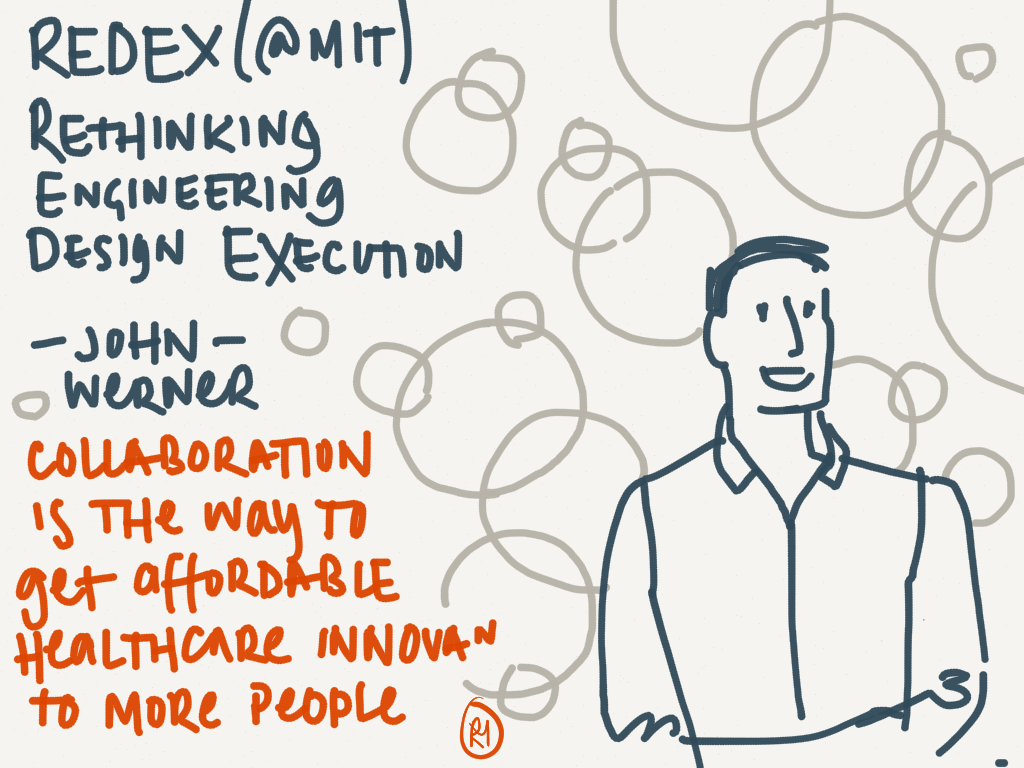 REDEX (@MIT)
RETHINKING
ENGINEERING
DESIGN EXECUTION
- JOHN -
WERNER
COLLABORATION
IS THE WAY TO
get AFFORDABLE
HEALTHCARE INNOVAN
to MORE PEOPLE